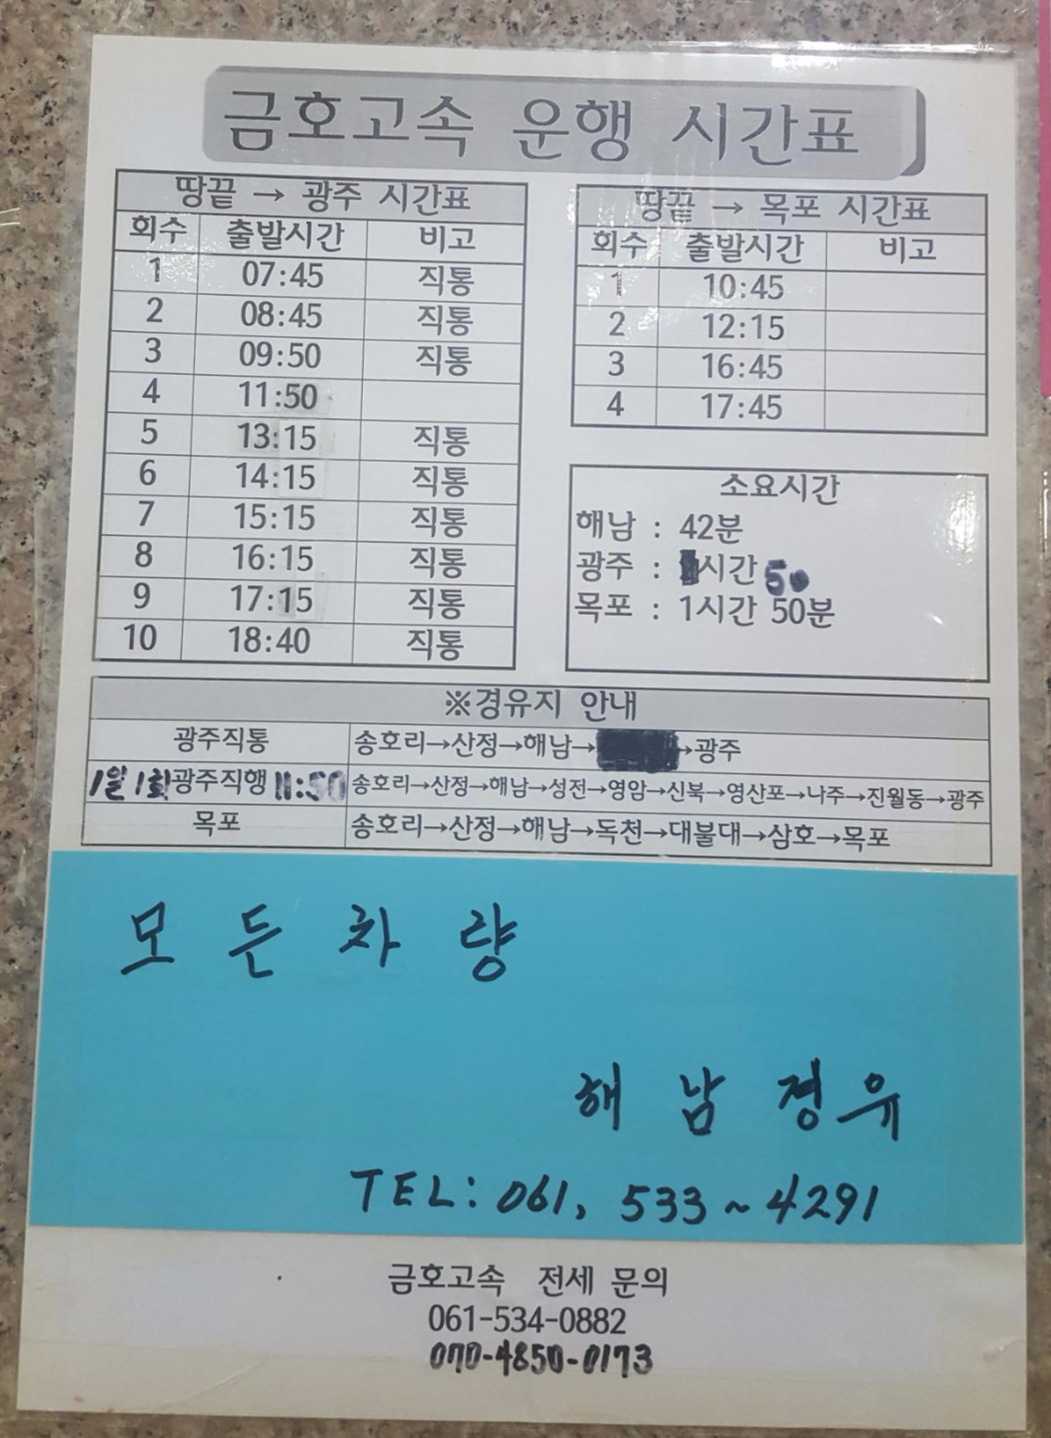 금호고속 운행 시간표
땅끝 → 광주 시간표
회수 출발시간 비고
1 07:45 직통
2 08:45 직통
3 09:50 직통
4 11:50
5 13:15 직통
6 14:15 직통
7 15:15 직통
8 16:15 직통
9 17:15 직통
10 18:40 직통
땅끝 → 목포 시간표
회수 출발시간 비고
1 10:45
2 12:15
3 16:45
4 17:45
소요시간
해남 : 42분
광주 : 시간 50
목포 : 1시간 50분
※경유지 안내
광주직통 송호리→산정→해남→ →광주
1일 1회 광주직행 11:50 송호리→산정→해남→성전→영암→신북→영산포→나주→진월동→광주
목포 송호리→산정→해남→독천→대불대→삼호→목포
모든차량
해남경유
TEL: 061, 533~4291
금호고속 전세 문의
061-534-0882
070-4850-0173